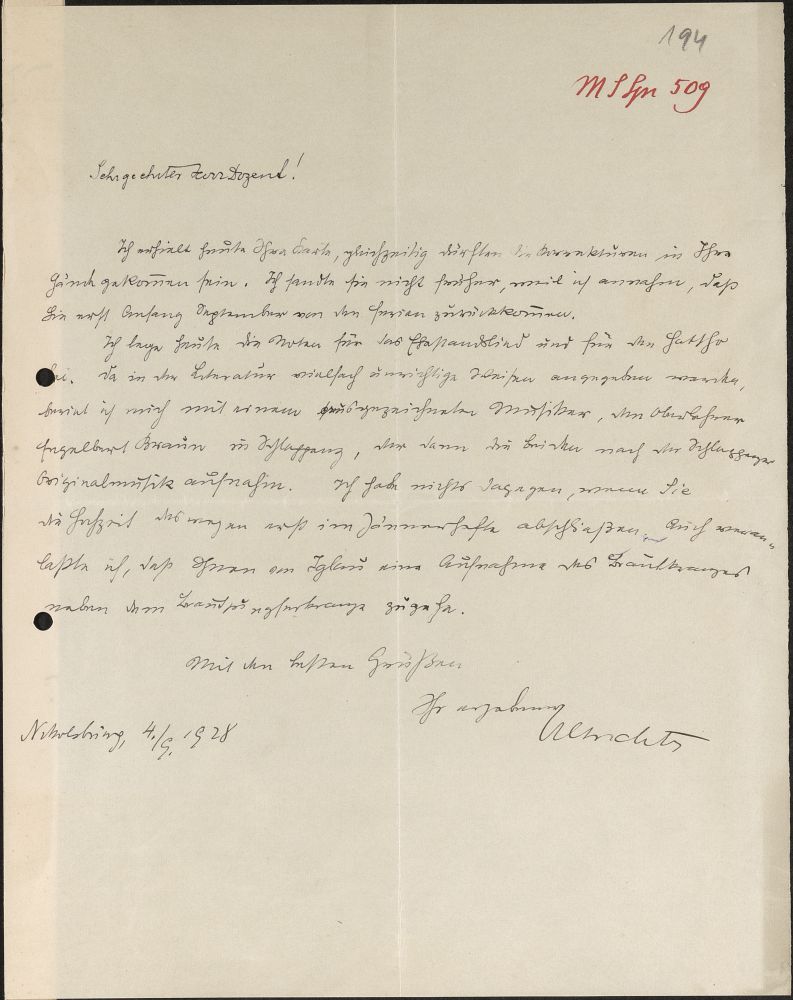 194
Sehrgeehrter Herr Dozent!
Ich erhielt heute Ihre Karte, gleichzeitig dürften die Korrekturen in Ihre
Hände gekom̄en sein. Ich sandte sie nicht früher, weil ich annahm, daß
Sie erst Anfang September von den Ferien zurückkom̄en.
Ich lege heute die Noten für das Ehestandslied und für den Hattho
bei. Da in der Literatur vielfach unrichtige Weisen angegeben werden,
beriet ich mich mit einem ausgezeichneten Musiker, dem Oberlehrer
Engelbert Braun in Schlappenz, der dann die beiden nach der Schlappenzer
Originalmusik aufnahm. Ich habe nichts dagegen, wenn Sie
die Hochzeit deswegen erst im Jännerhefte abschließen. Auch veran-
laßte ich, daß Ihnen von Iglau eine Aufnahme des Brautkranzes
neben dem Brautjungfernkranze zugehe.
Mit den besten Grüßen
Ihr ergebener
Nikolsburg, 4./9. 1928